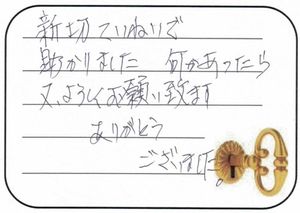 新切ていねいで
助かりました 何かあったら
又、よろしくお願い致ます
ありがとう
ございました。